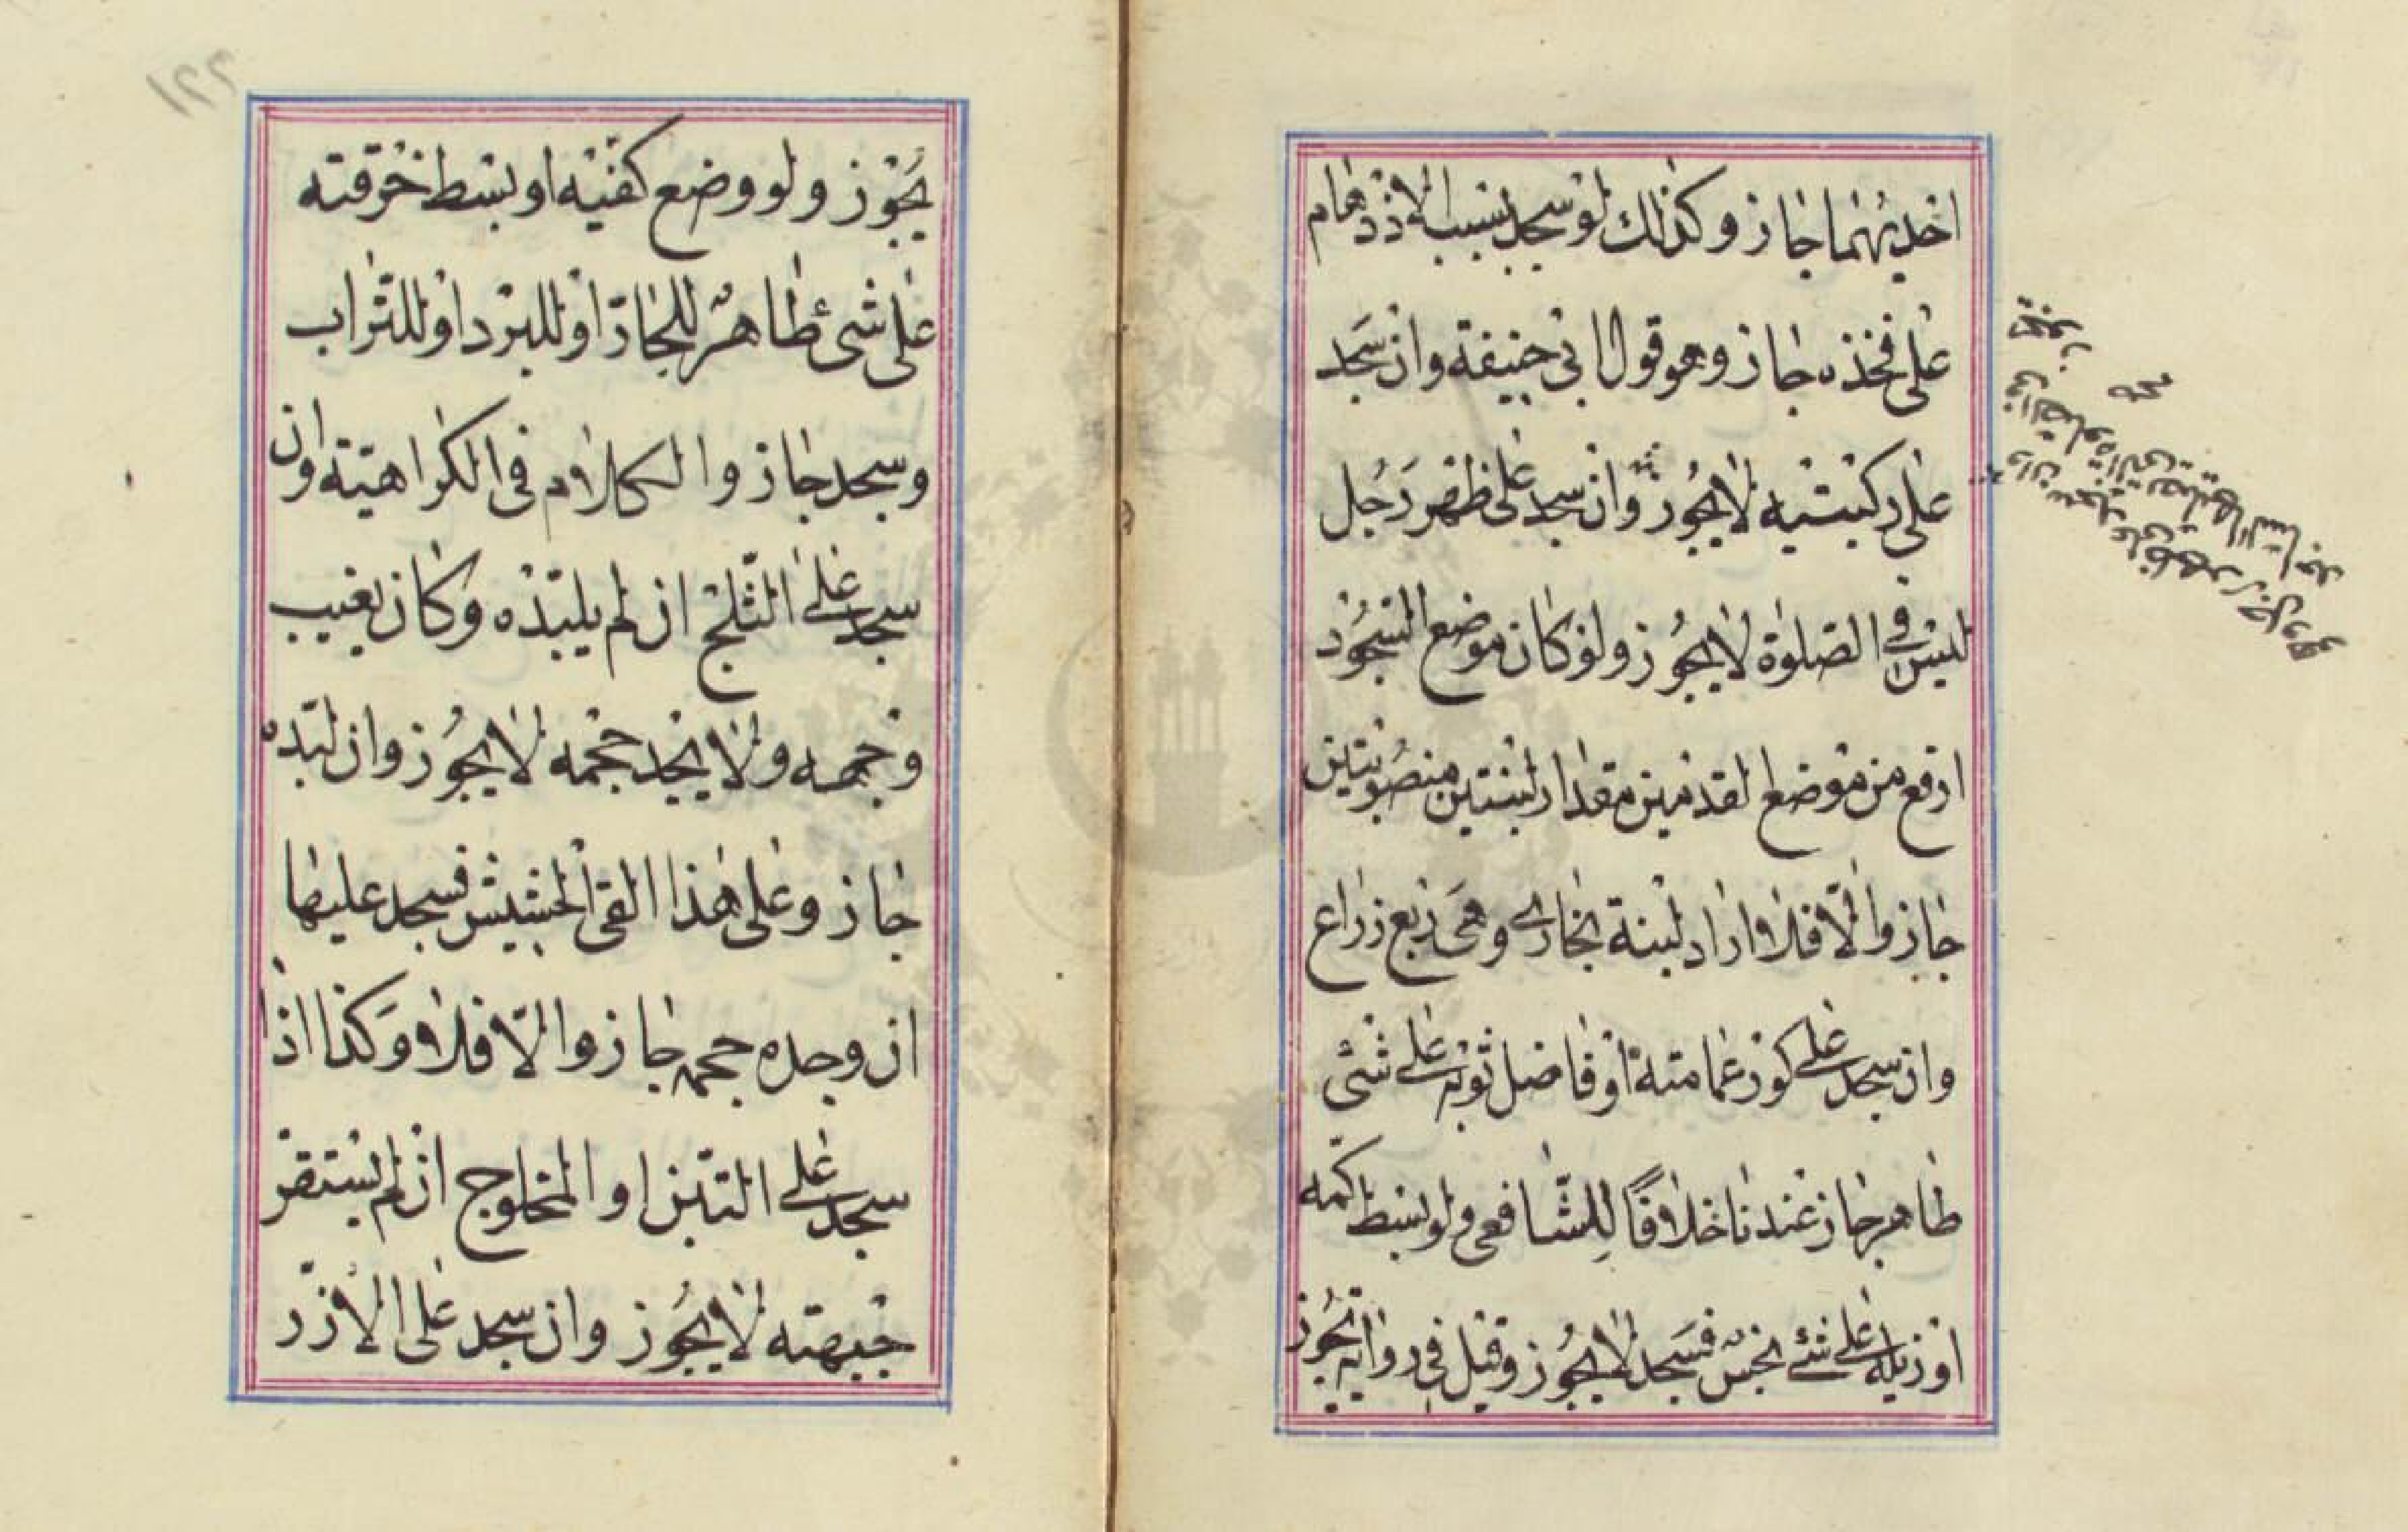 احديهما جاز وكذلك لو سجد بسبب الازدهام
على فخذه جاز وهو قول ابى حنيفة وان سجد
على ركبتيه لا يجوز وان سجد على ظهر رجل
ليس فى الصلوة لا يجوز ولو كان موضع السجود
ارفع من موضع القدمين مقدار لبنتين منصوبتين
جاز والا فلا واراد لبنة بخارى وهى ربع زراع
وان سجد على كوز عمامته او فاضل ثوبه على شئ
طاهر جاز عندنا خلافا للشافعى ولو بسط كمه
او زيله على شئ نجس فسجد لا يجوز وقيل فى رواية يجوز
وان سجد على ظهر رجل وهو
فى الصلوة التى يصليها الساجد
يجوز
صح
221
يجوز ولو وضع كفيه او بسط خرقته
على شئ طاهر للحار او للبرد او للتراب
وسجد جاز والكلام فى الكراهية وان
سجد على الثلج ان لم يلبده وكان يغيب
وجهه ولا يجد حجمه لا يجوز وان لبده
جاز وعلى هذا القى الحشيش فسجد عليها
ان وجده حجمه جاز والا فلا وكذا اذا
سجد على التبن او المحلوج ان لم يستقر
جبهته لا يجوز وان سجد على الارز